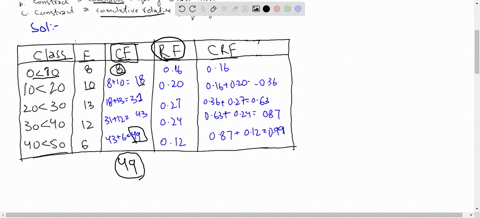 c. Construct a cumulative relative
Sol:-
Class F CF RF CRF
0<10 8 8 0.16 0.16
10<20 10 8+10= 18 0.20 0.16+0.20= 0.36
20<30 13 18+13=31 0.27 0.36+0.27=0.63
30<40 12 31+12= 43 0.24 0.63+0.24= 0.87
40<50 6 43+6=49 0.12 0.87+0.12=0.99
49